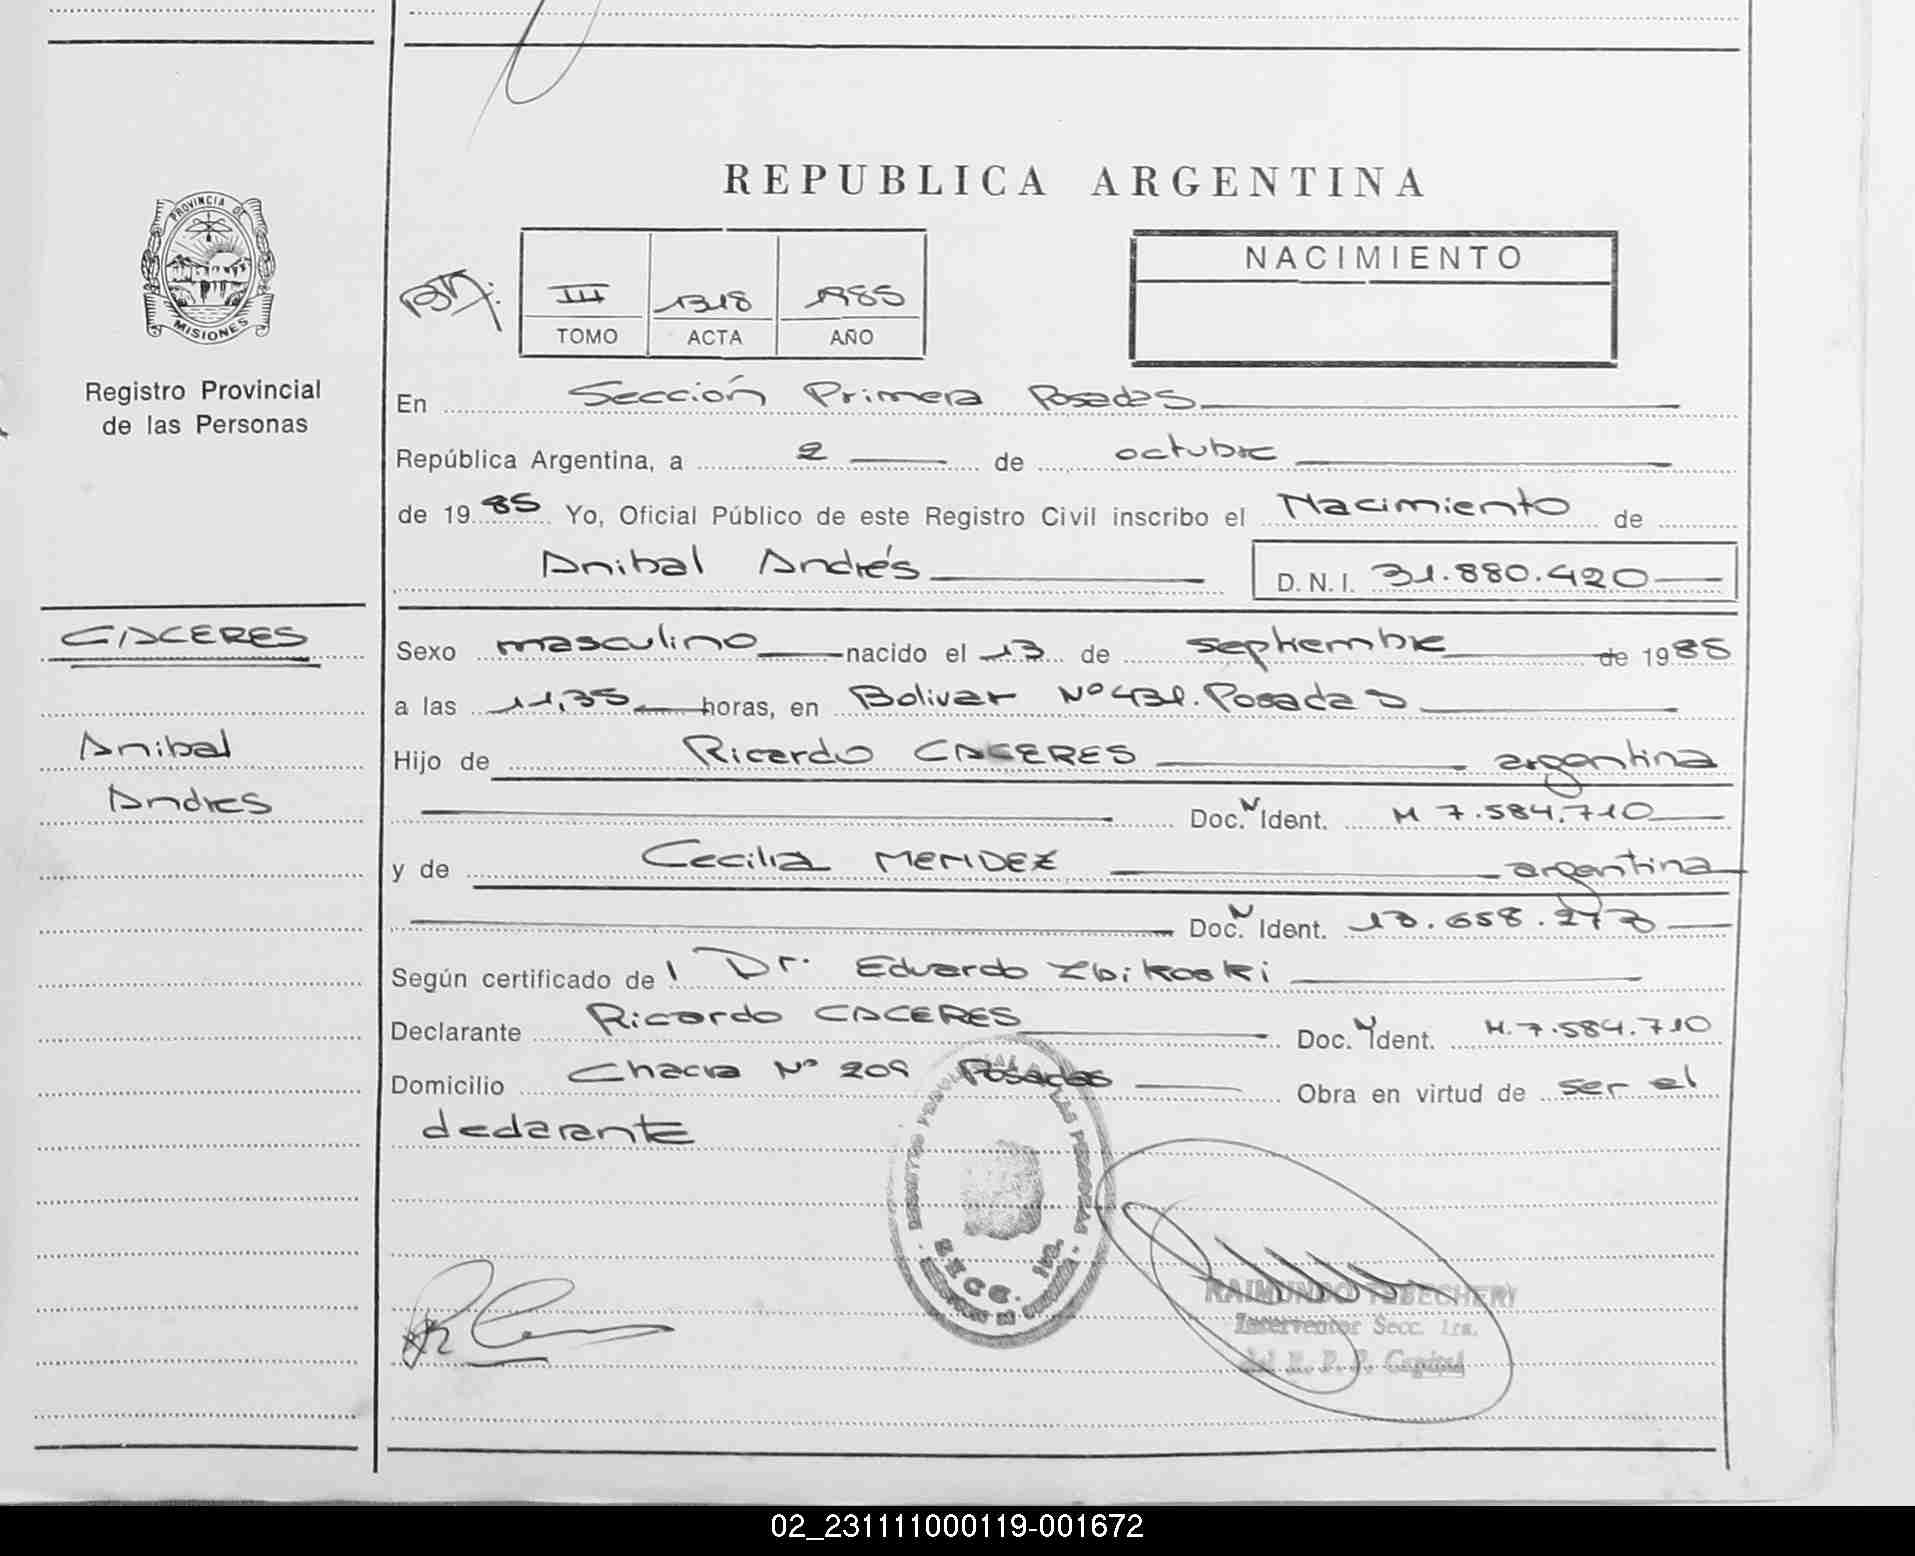 REPUBLICA ARGENTINA
PROVINCIA DE
MISIONES
Registro Provincial
de las Personas
NACIMIENTO
III 1318 1985
TOMO ACTA AÑO
En Sección Primera Posadas
República Argentina, a 2 de octubre
de 1985 Yo, Oficial Público de este Registro Civil inscribo el Nacimiento de
Anibal Andrés D.N.I. 31.880.420
CACERES
Anibal
Andres
Sexo masculino nacido el 13 de septiembre de 1985
a las 11,35 horas, en Bolivar Nº 431. Posadas
Hijo de Ricardo CACERES argentina
Doc. N Ident. M 7.584.710
y de Cecilia MENDEZ argentina
Doc. N Ident. 18.658.273
Según certificado de l Dr. Eduardo Zbikoski
Declarante Ricardo CACERES Doc. N Ident. M.7.584.710
Domicilio Chacra Nº 209 Posadas Obra en virtud de ser el
declarante
SECC. 1ra.
RAIMUNDO
Interventor Secc. 1ra.
del R. P. P. Capital
02_231111000119-001672